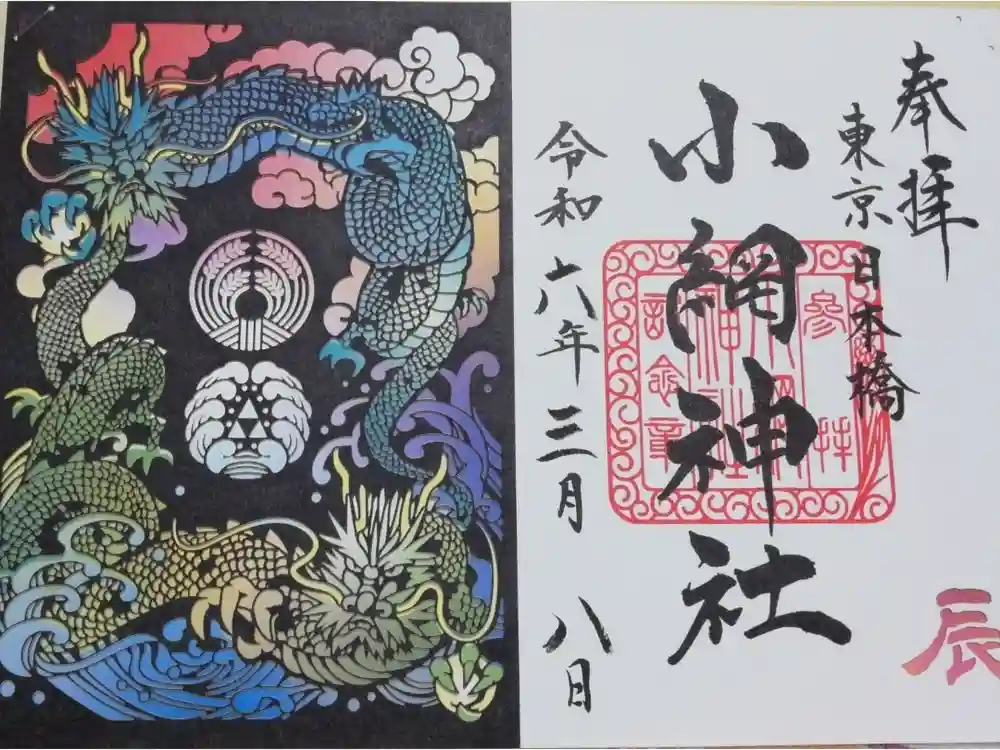 奉拝
東京
日本橋
小網神社
参拝
小網
神社
記念章
令和六年三月八日
辰